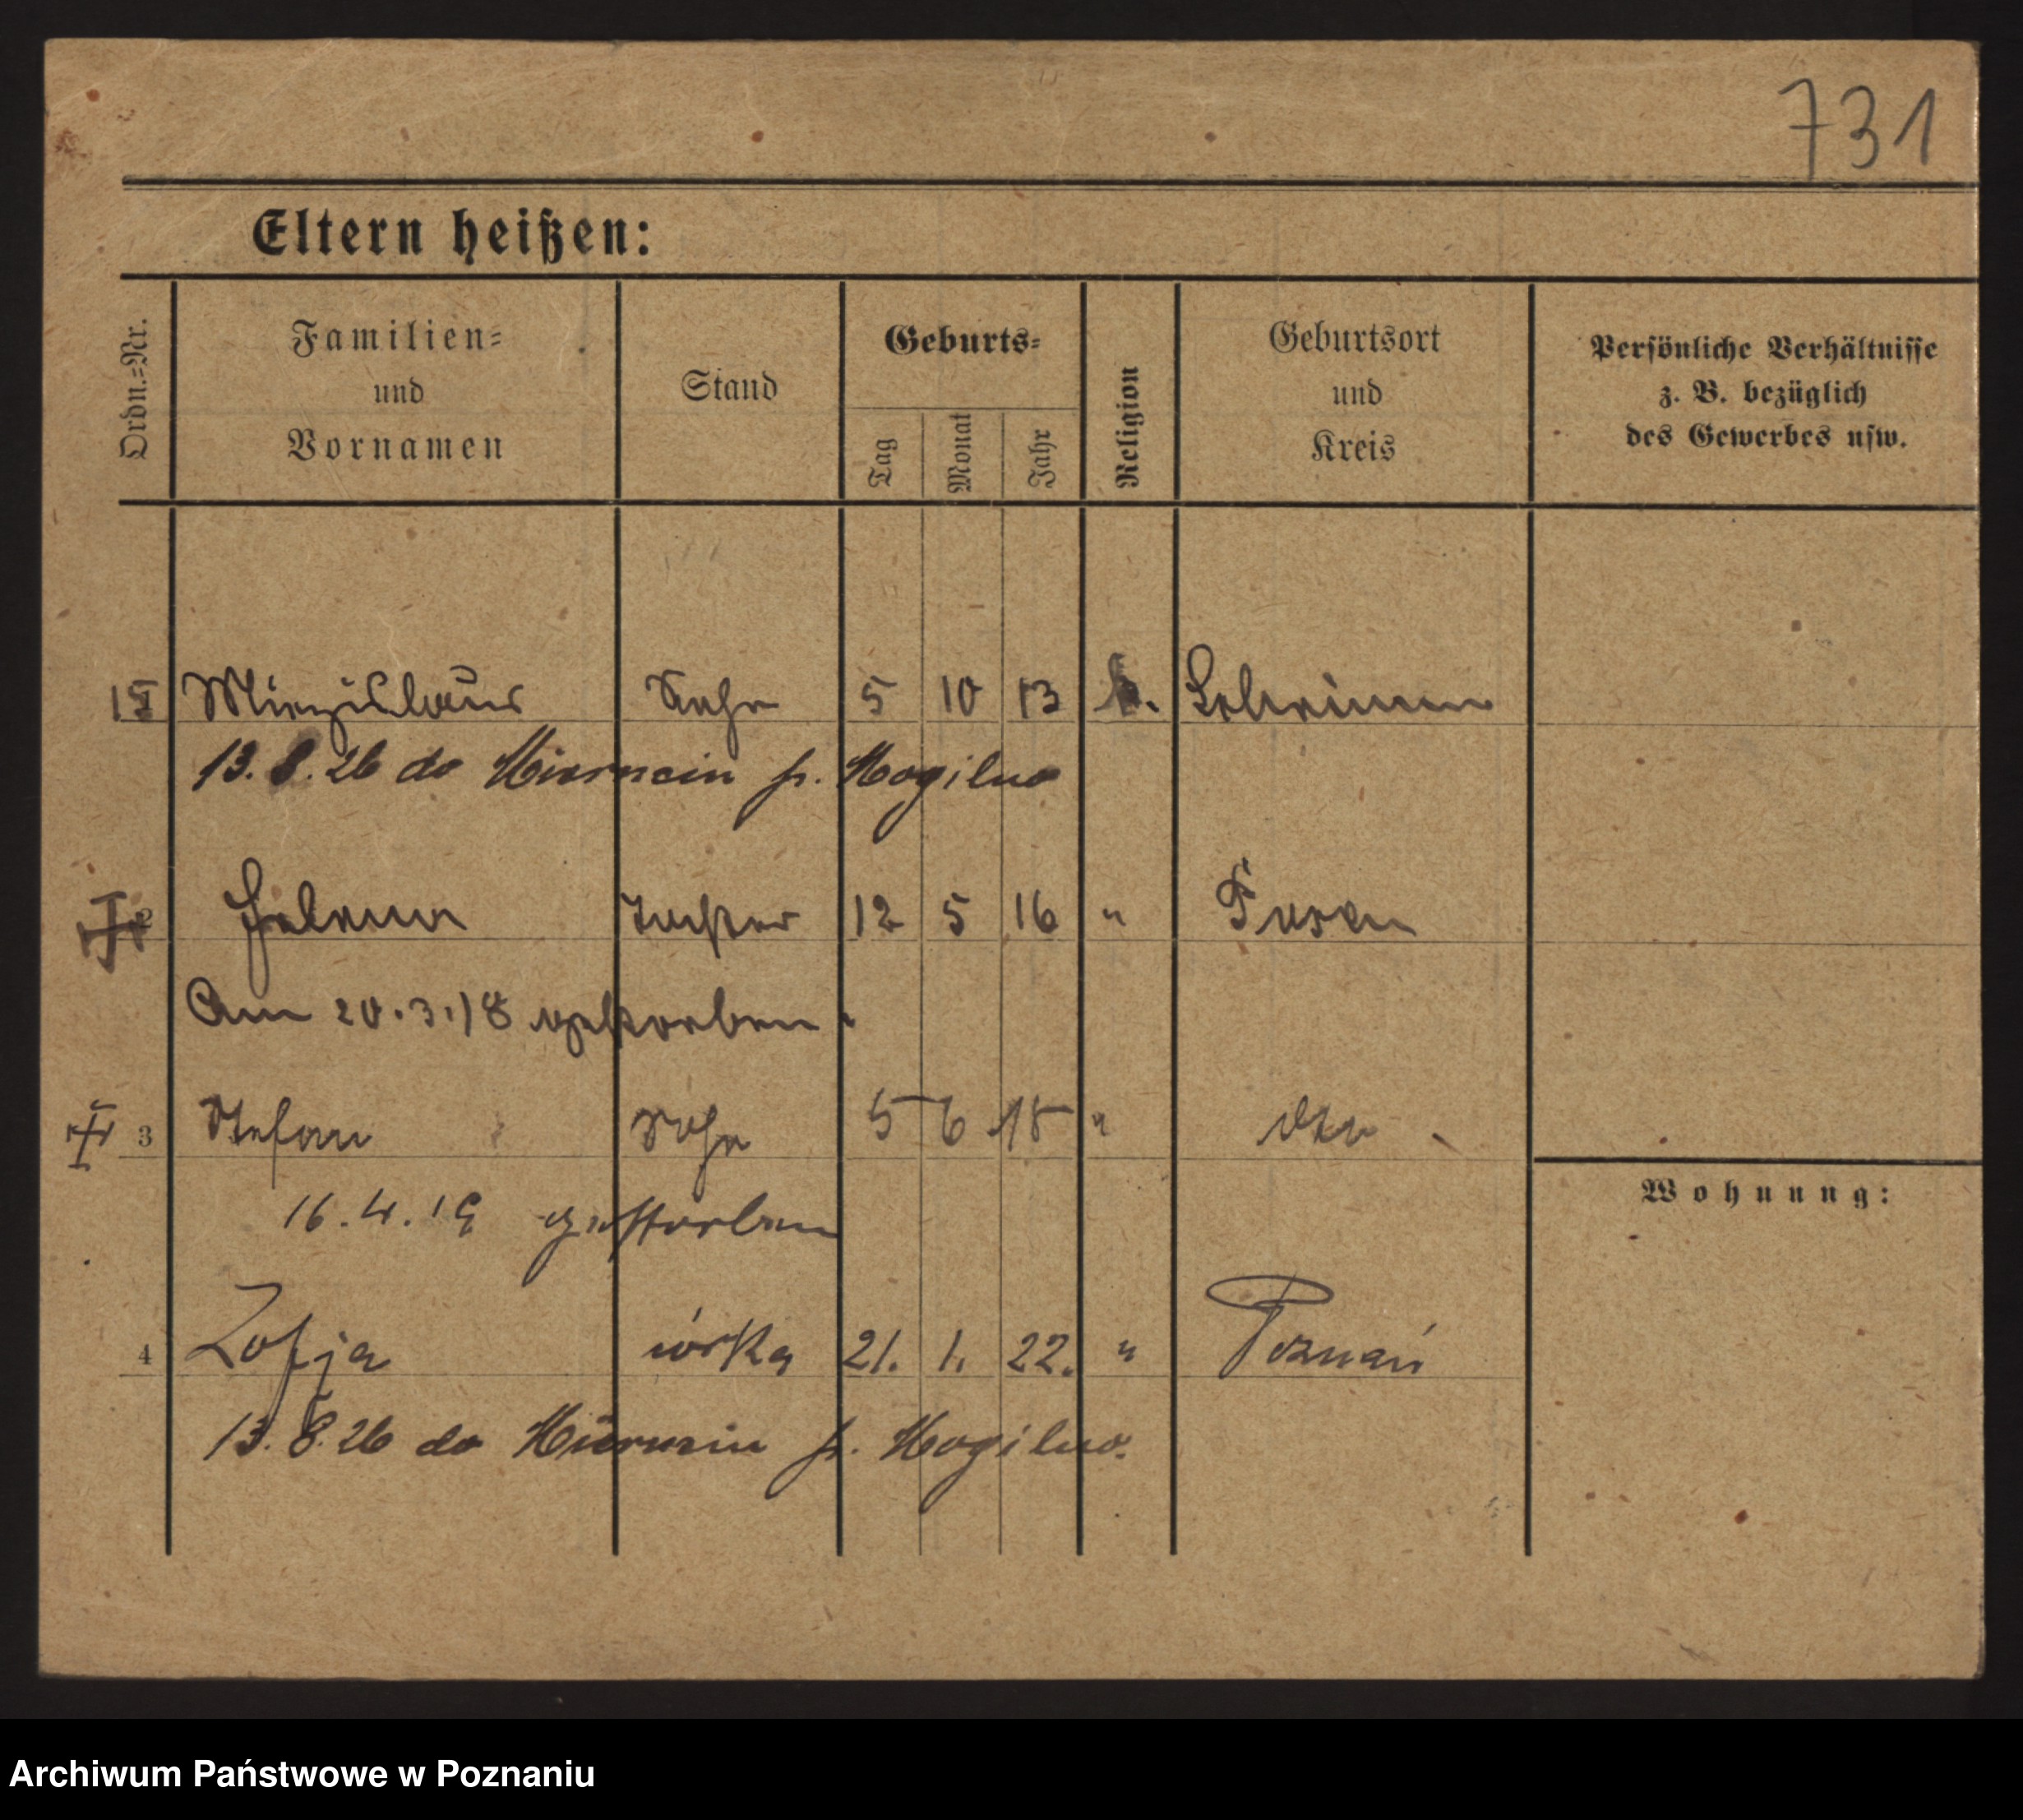 731
Eltern heißen:
Ordn.=Nr. Familien= und Vornamen Stand Geburts= Tag Monat Jahr Religion Geburtsort und Kreis Persönliche Verhältnisse z. B. bezüglich des Gewerbes usw.
Miezislaus Sohn 5 10 13 k. Schrimm
13. 8. 26 do p. Mogilno
2 Helena Tochter 12 5 16 " Posen
Am 20.3.18 gestorben.
3 Stefan Sohn 5 6 18 " dto
16.4.19 gestorben
Wohnung:
4 Zofja córka 21. 1. 22. " Poznań
13. 8. 26 do p. Mogilno.
Archiwum Państwowe w Poznaniu